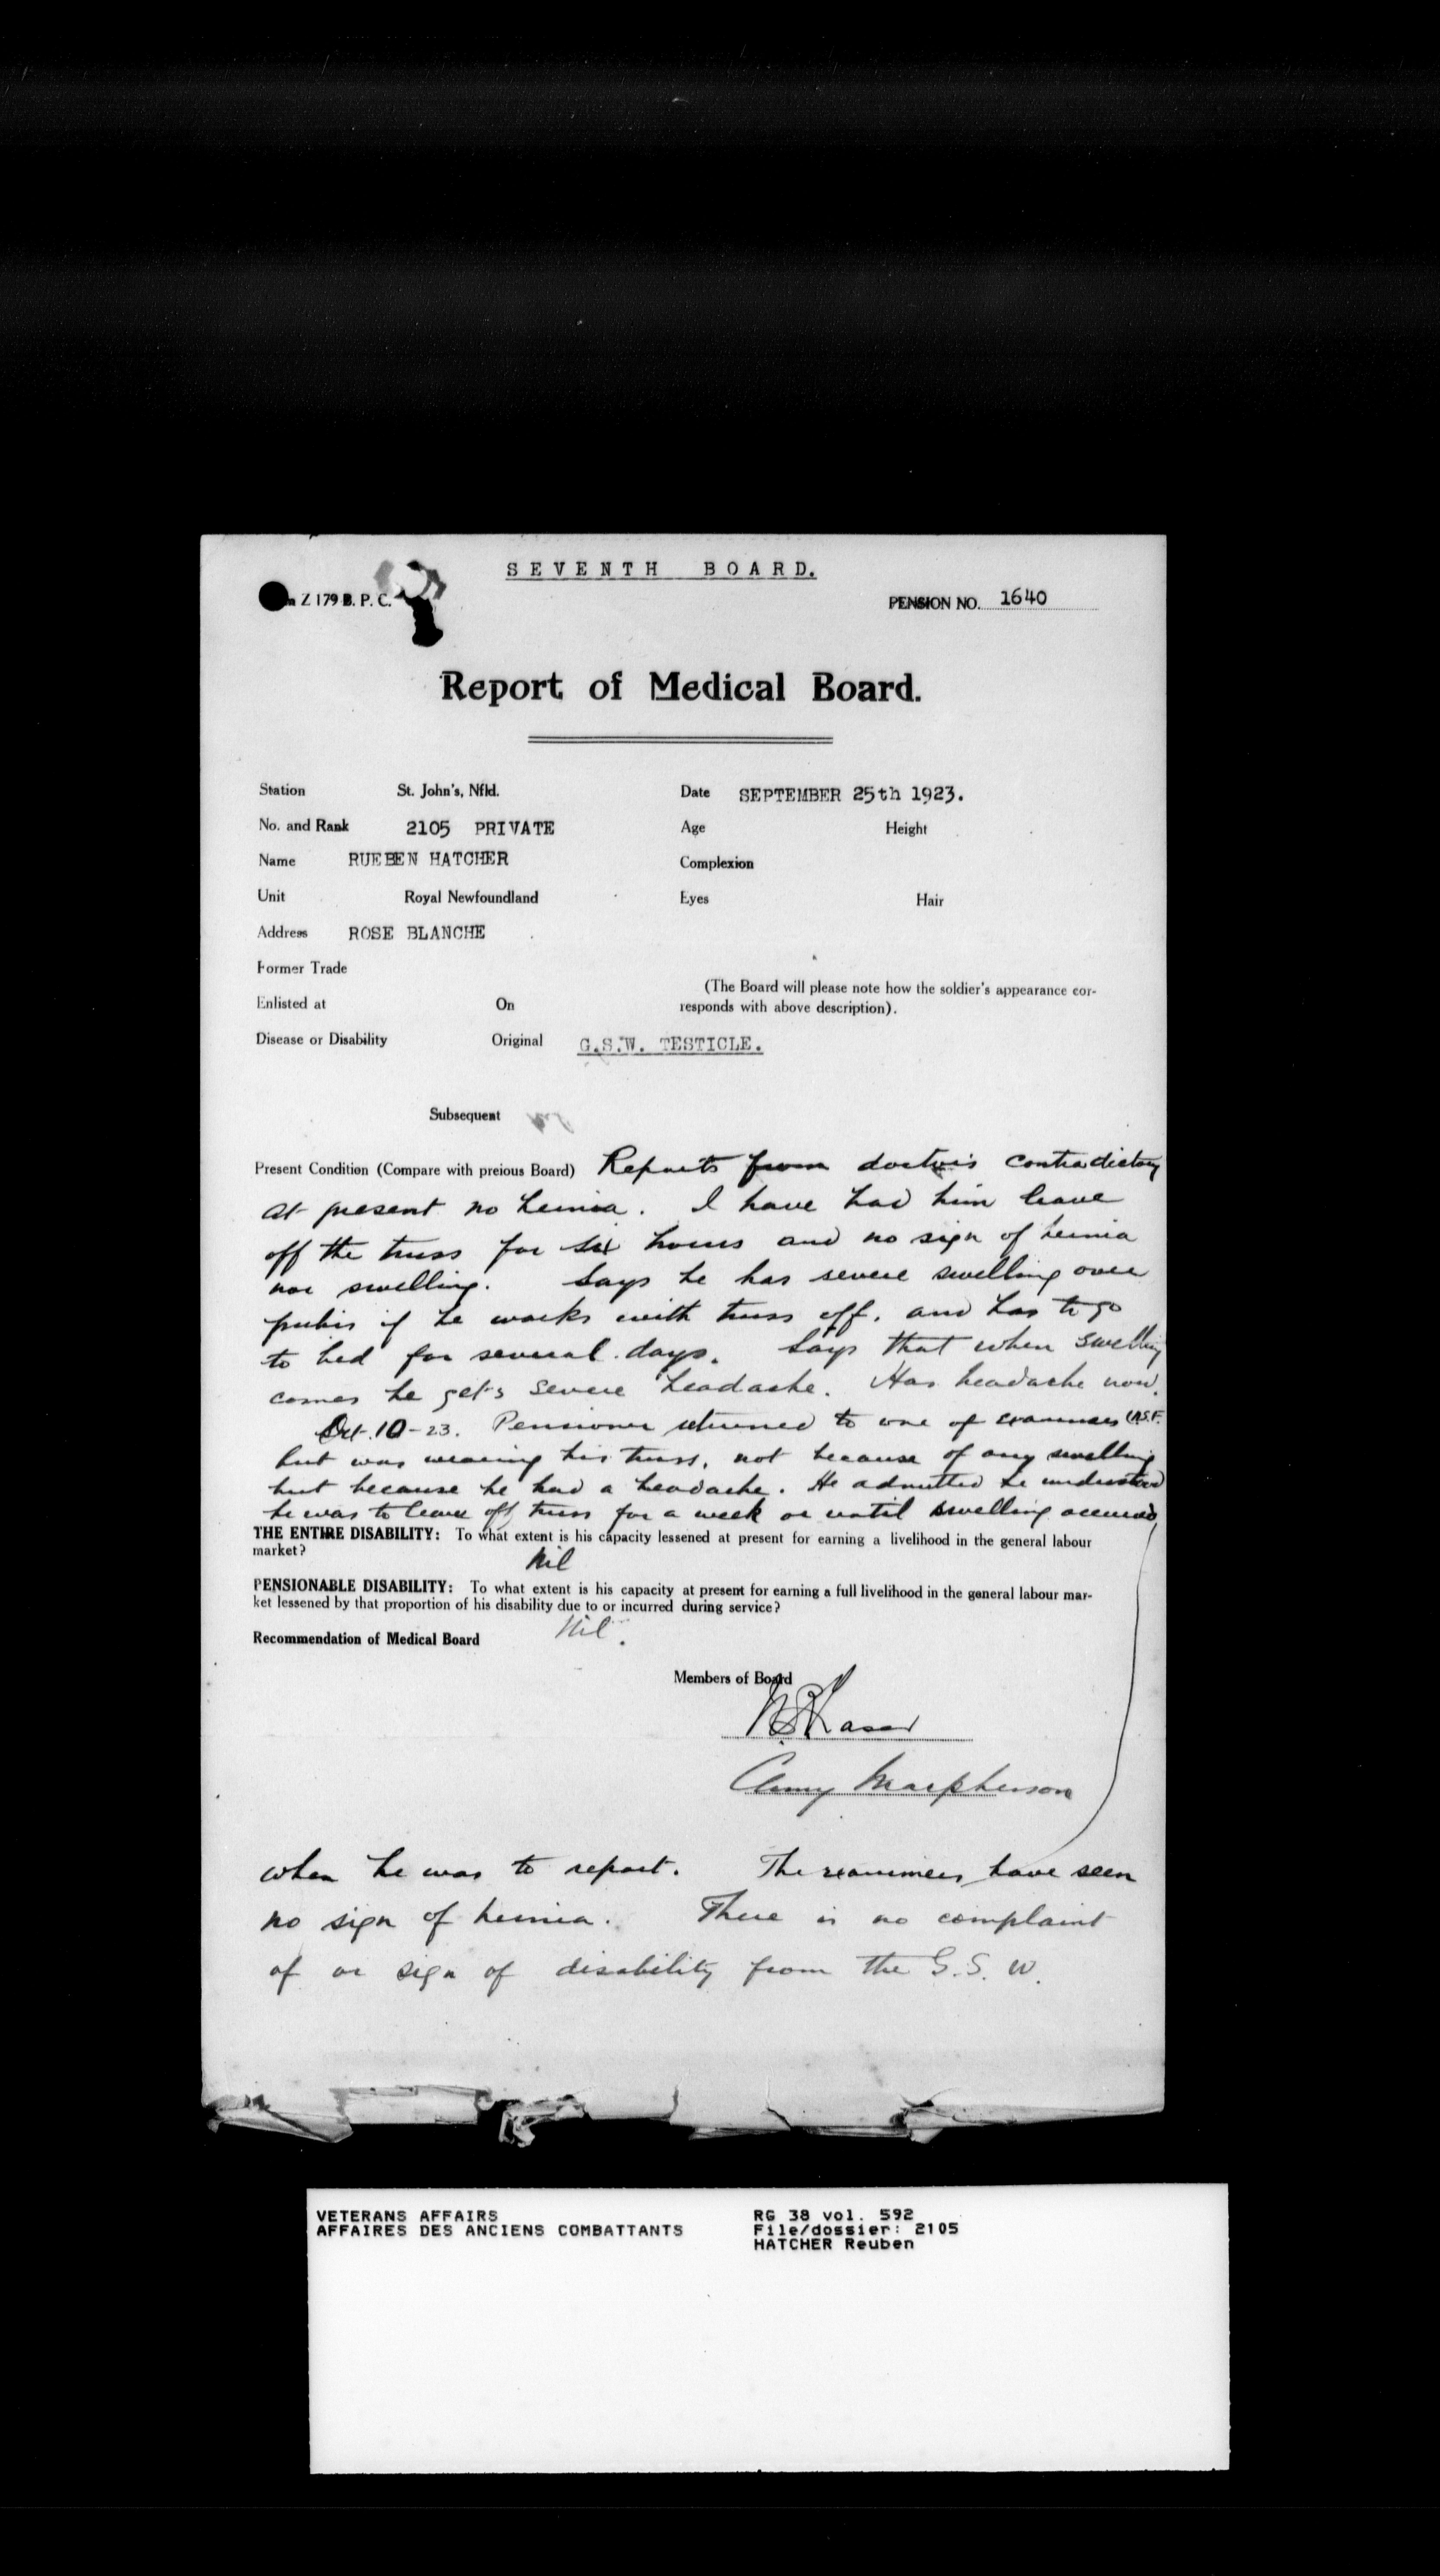 SEVENTH BOARD.
Z 179 B. P. C.
PENSION NO. 1640
Report of Medical Board.
Station St. John's, Nfld. Date SEPTEMBER 25th 1923.
No. and Rank 2105 PRIVATE Age Height
Name RUEBEN HATCHER Complexion
Unit Royal Newfoundland Eyes Hair
Address ROSE BLANCHE
Former Trade
(The Board will please note how the soldier's appearance cor-
Enlisted at On responds with above description).
Disease or Disability Original G.S.W. TESTICLE.
Subsequent
Present Condition (Compare with preious Board) Reports from doctors contradictory
at present no hernia. I have had him leave
off the truss for six hours and no sign of hernia
nor swelling. Says he has severe swelling over
pubis if he works with truss off, and has to go
to bed for several days. Says that when swelling
comes he gets severe headache. Has headache now.
Oct. 10-23. Pensioner returned to one of examiners (N.S.F.
but was wearing his truss, not because of any swelling
but because he had a headache. He admitted he understood
he was to leave off truss for a week or until swelling occurred
THE ENTIRE DISABILITY: To what extent is his capacity lessened at present for earning a livelihood in the general labour
market? Nil
PENSIONABLE DISABILITY: To what extent is his capacity at present for earning a full livelihood in the general labour mar-
ket lessened by that proportion of his disability due to or incurred during service?
Recommendation of Medical Board Nil.
Members of Board
N.S. Fraser
Cluny Macpherson
when he was to report. The examiners have seen
no sign of hernia. There is no complaint
of or sign of disability from the G.S.W.
VETERANS AFFAIRS RG 38 vol. 592
AFFAIRES DES ANCIENS COMBATTANTS File/dossier: 2105
HATCHER Reuben